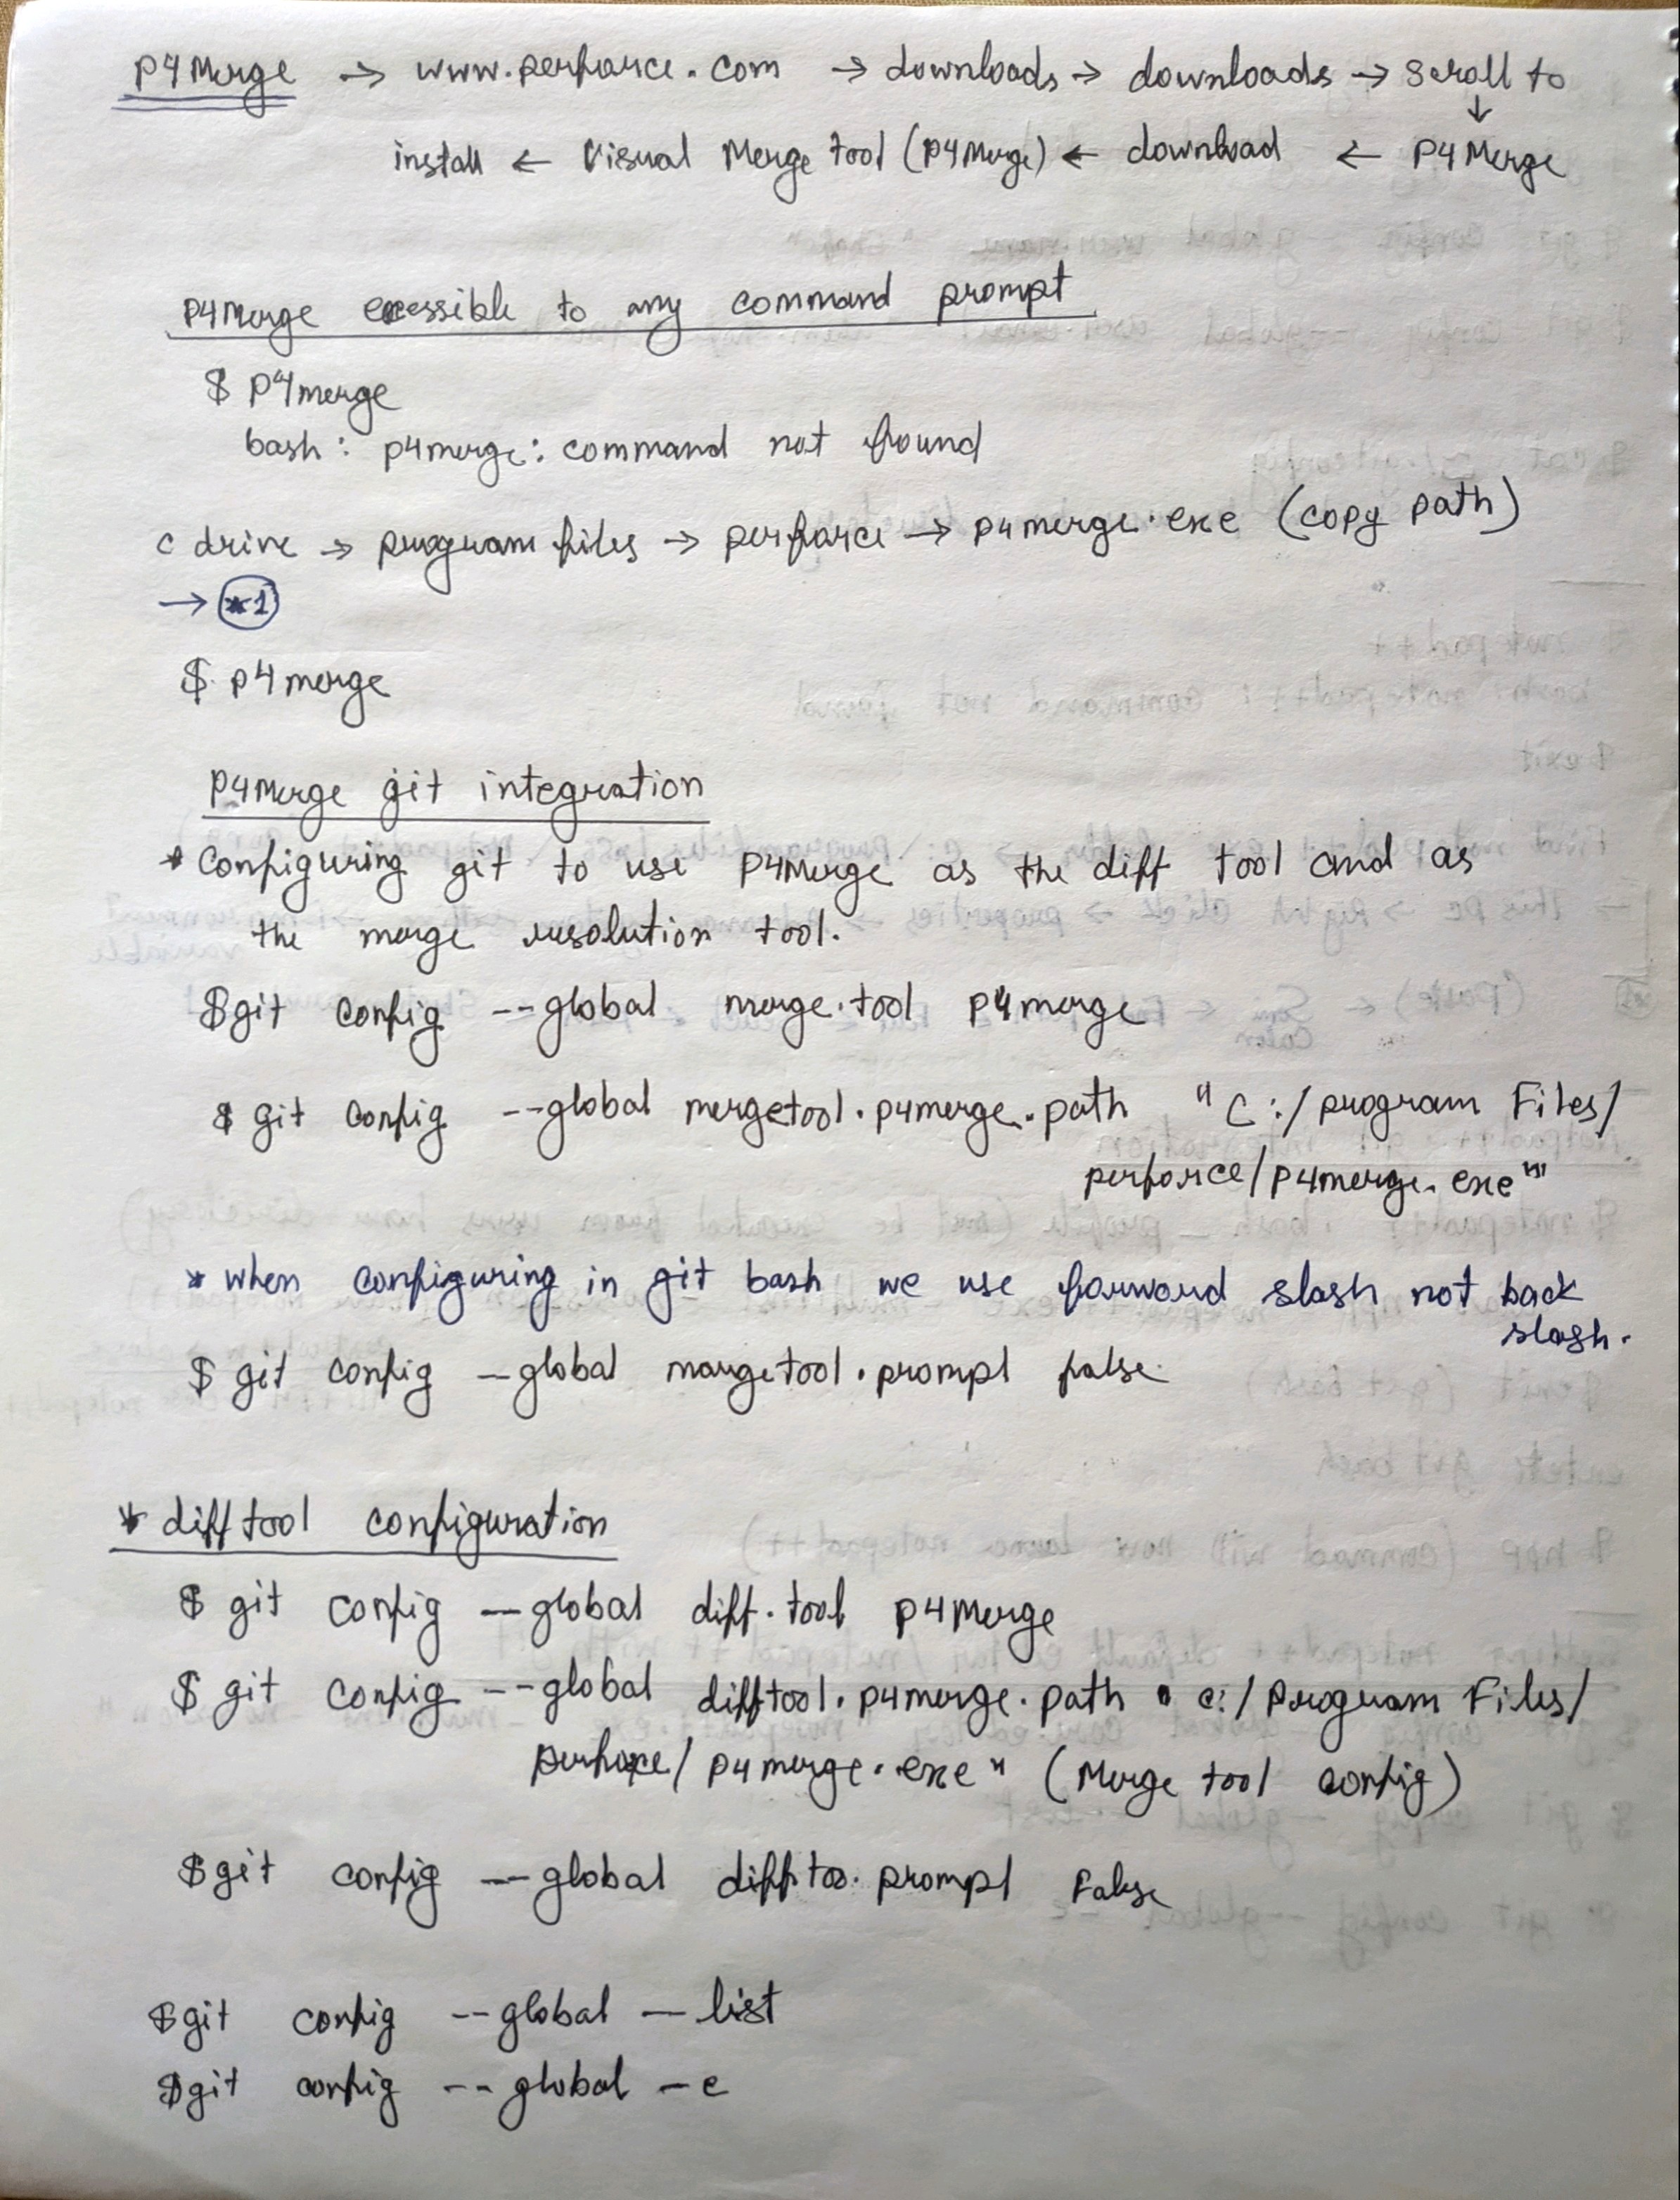 P4Merge → www.perforce.com → downloads → downloads → scroll to
↓
install ← Visual Merge Tool (P4Merge) ← download ← P4Merge
P4Merge eccessible to any command prompt
$ P4merge
bash: p4merge: command not found
c drive → program files → perforce → p4merge.exe (copy path)
→ *1
$ p4merge
P4Merge git integration
* Configuring git to use P4Merge as the diff tool and as
the merge resolution tool.
$git config --global merge.tool p4merge
$ git config --global mergetool.p4merge.path "C:/program Files/
perforce/p4merge.exe"
* when configuring in git bash we use forward slash not back
slash.
$ git config --global mergetool.prompt false
* difftool configuration
$ git config --global diff.tool P4Merge
$ git config --global difftool.p4merge.path " c:/Program Files/
perforce/p4merge.exe" (Merge tool config)
$git config --global difftoo.prompt False
$git config --global --list
$git config --global -e